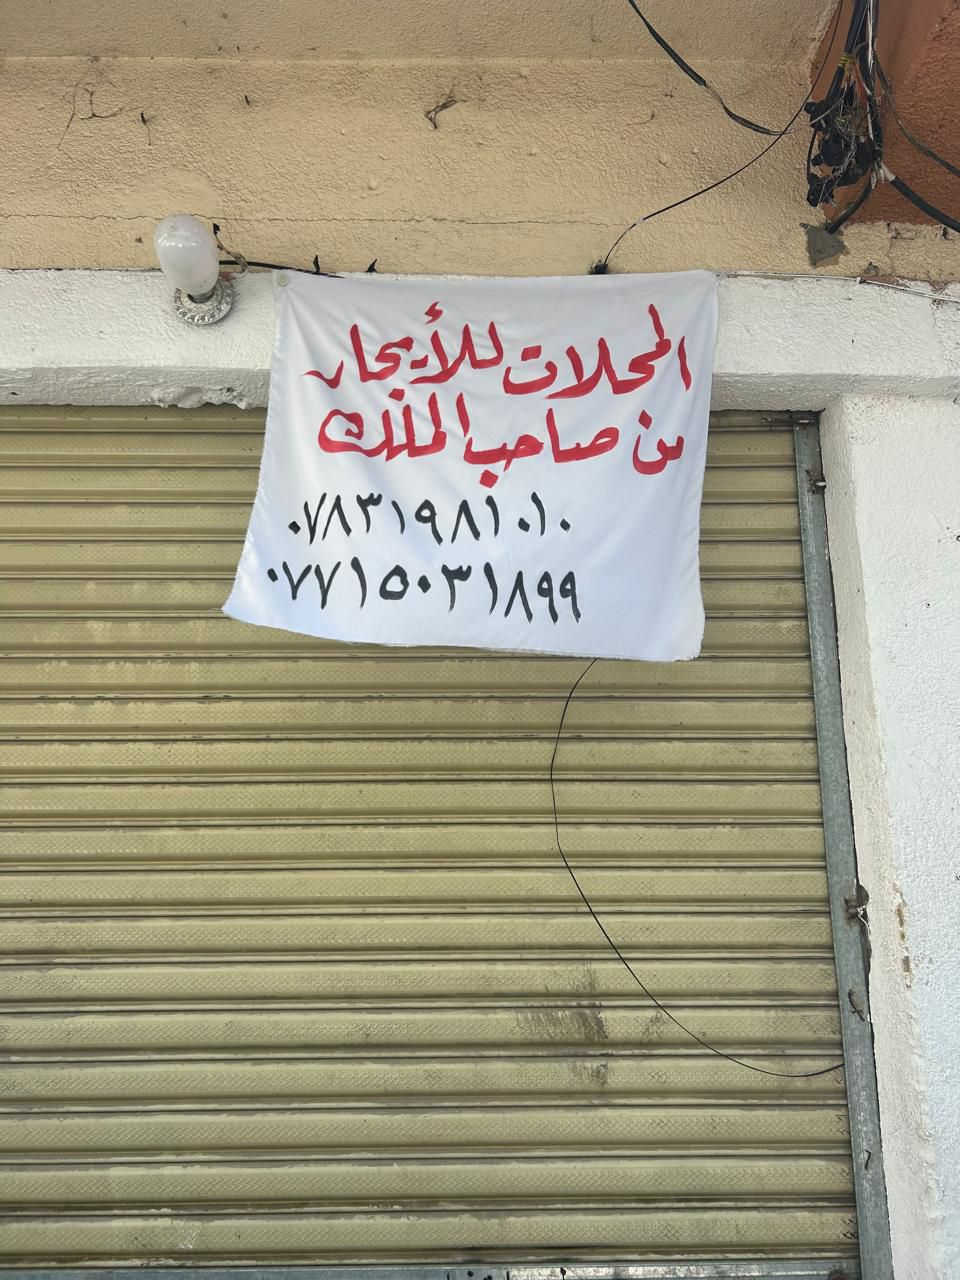 المحلات للأيجار
من صاحب الملك
٠٧٨٣١٩٨١٠١٠
٠٧٧١٥٠٣١٨٩٩